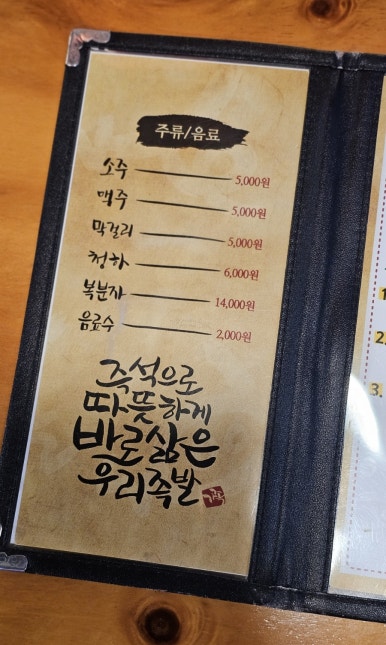 주류/음료
소주 5,000원
맥주 5,000원
막걸리 5,000원
청하 6,000원
복분자 14,000원
음료수 2,000원
즉석으로
따뜻하게
바로삶은
우리족발
2.
3.